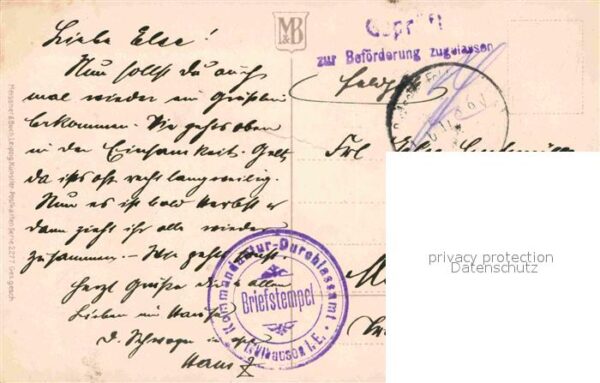 M&B
Geprüft
zur Beförderung zugelassen
Liebe Else!
Nun sollst du auch
mal wieder ein Grüßlein
bekommen. Wie gehts oben
in der Einsamkeit. Gelt
da ists oft recht langweilig.
Nun es ist bald Herbst &
dann zieht ihr alle wieder
zusammen. – Wie gehts sonst.
Herzl Grüße dir & allen
Lieben im Hause
d. Schwager
Hans
Feldp
Frl. Else
Meissner & Buch, Leipzig, Künstler-Postkarten Serie 2277 Ges. gesch.
Kommandantur-Durchlassamt
Briefstempel
Mülhausen i. E.
privacy protection
Datenschutz